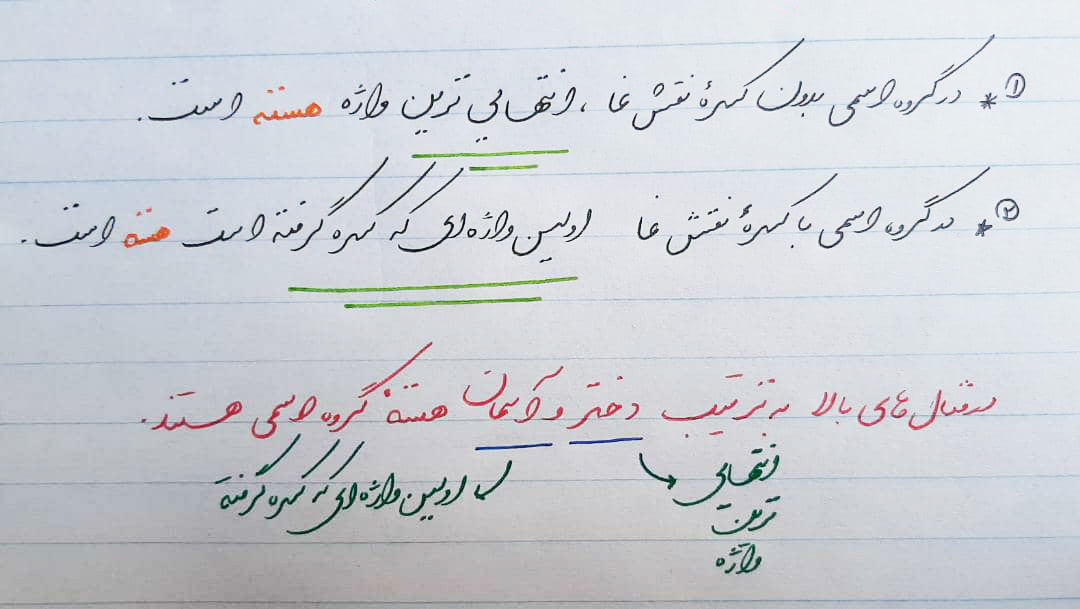 ①* در گروه اسمی بدون کسرهٔ نقش نما ، انتهایی ترین واژه هسته است.
②* در گروه اسمی با کسرهٔ نقش نما اولین واژه‌ای که کسره گرفته است هسته است.
در مثال های بالا به ترتیب دختر و آسمان هستهٔ گروه اسمی هستند.
انتهایی
ترین
واژه
اولین واژه‌ای که کسره گرفته